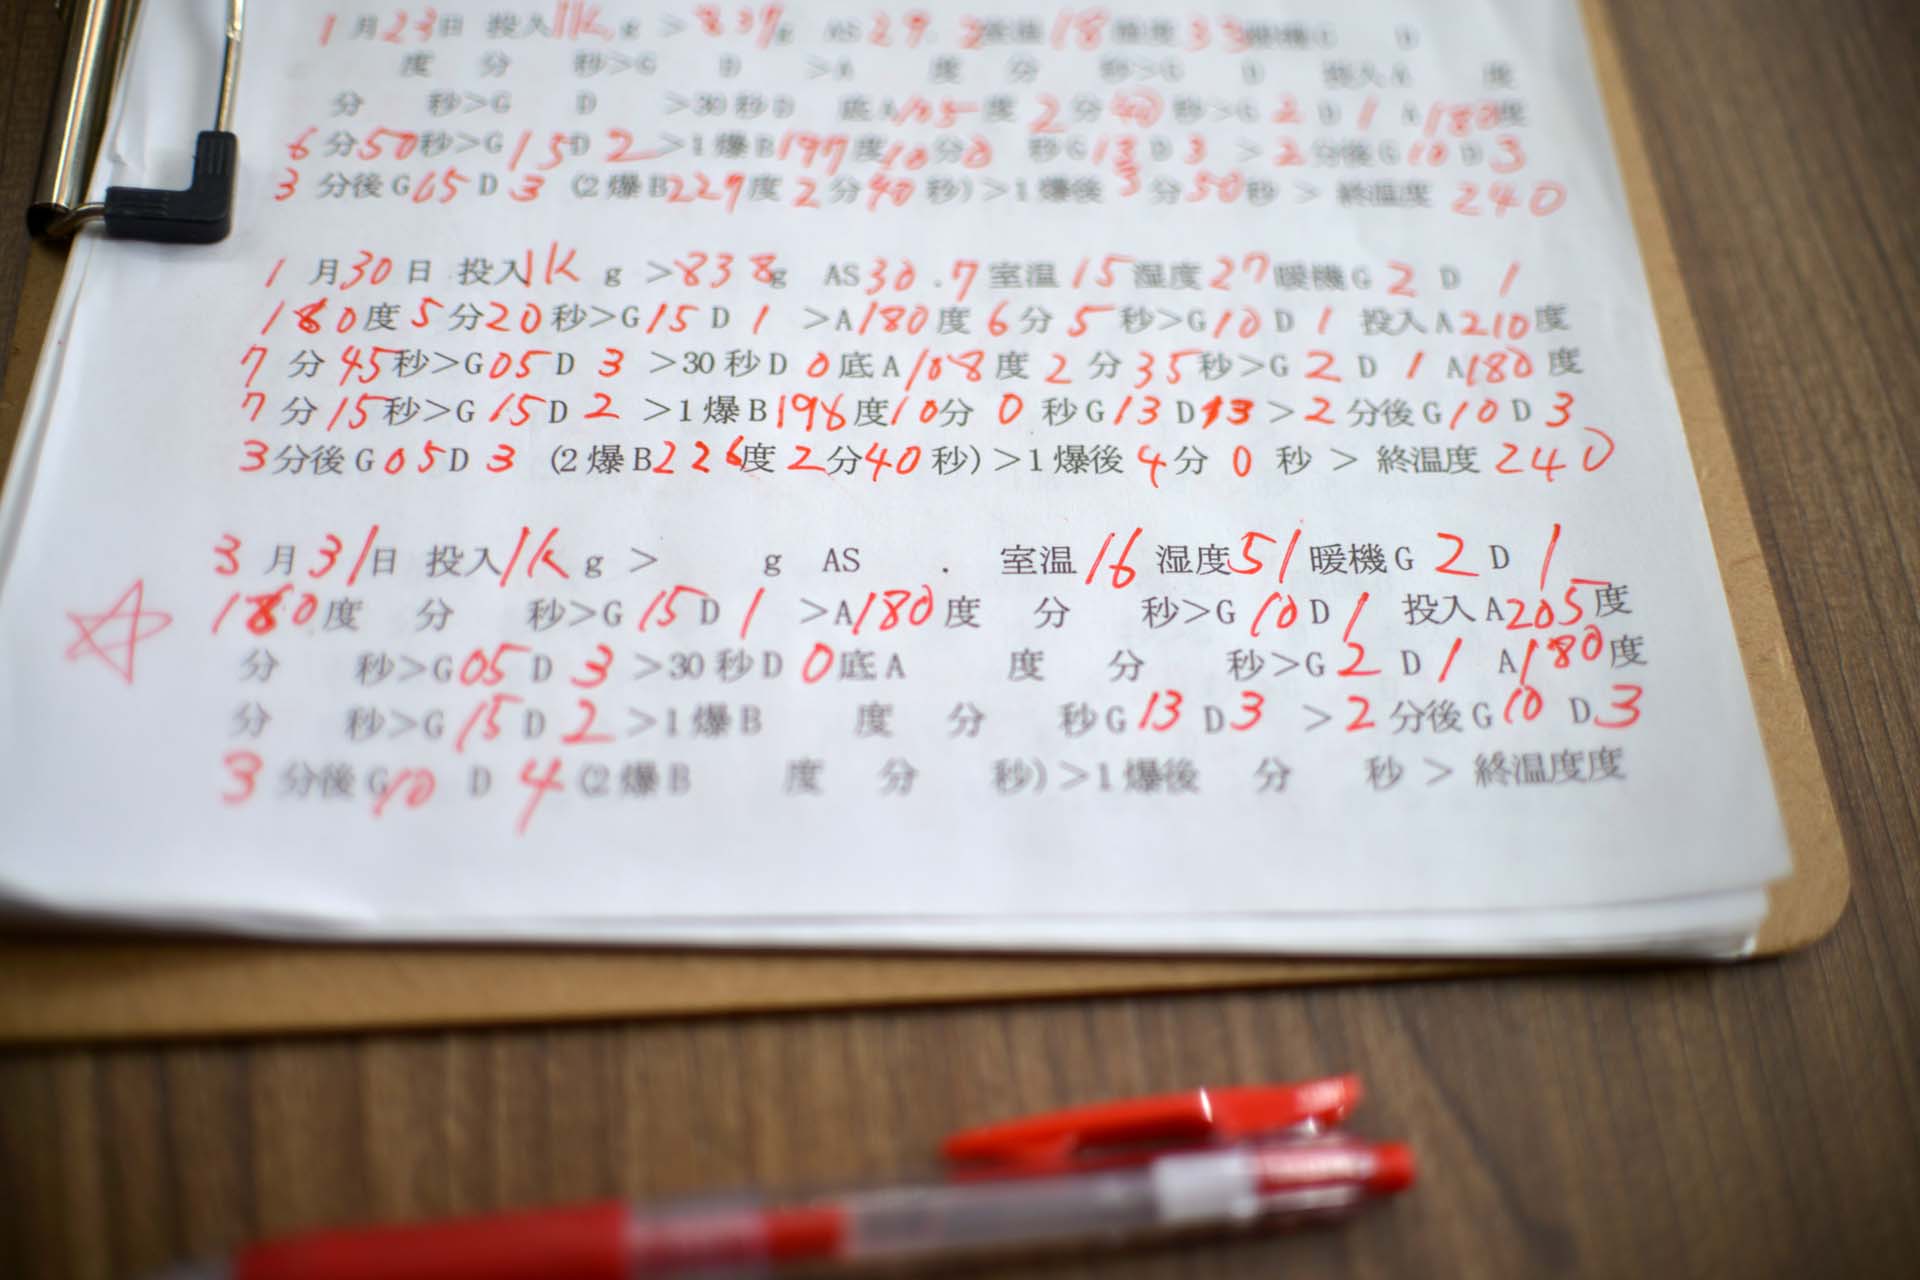 1月23日 投入1Kg >839g AS29. 室温18湿度33暖機G D
度 分 秒>G D >A 度 分 秒>G D 投入A 度
分 秒>G D >30秒D 底A105度2分40秒>G2D1 A180度
6分50秒>G15D2>1爆B197度10分0秒G13D3>2分後G10D3
3分後G05D3 (2爆B229度2分40秒)>1爆後3分50秒>終温度240
1月30日 投入1Kg >838g AS30.7室温15湿度27暖機G2D1
180度5分20秒>G15D1 >A180度6分5秒>G10D1 投入A210度
7分45秒>G05D3 >30秒D0底A108度2分35秒>G2D1 A180度
7分15秒>G15D2 >1爆B198度10分0秒G13D13>2分後G10D3
3分後G05D3 (2爆B226度2分40秒)>1爆後4分0秒>終温度240
3月31日 投入1Kg > g AS . 室温16湿度51暖機G2D1
180度 分 秒>G15D1 >A180度 分 秒>G10D1 投入A205度
分 秒>G05D3 >30秒D0底A 度 分 秒>G2D1 A180度
分 秒>G15D2>1爆B 度 分 秒G13D3 >2分後G10D3
3分後G10D4(2爆B 度 分 秒)>1爆後 分 秒>終温度度